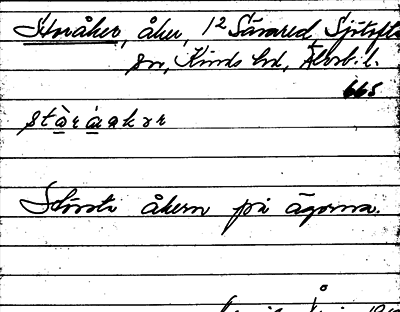 Storåker, åker, 1² Sämred, Sjötofta
sn, Kinds hd, Älvsb. l.
665
stàráakər
Största åkern på ägorna.